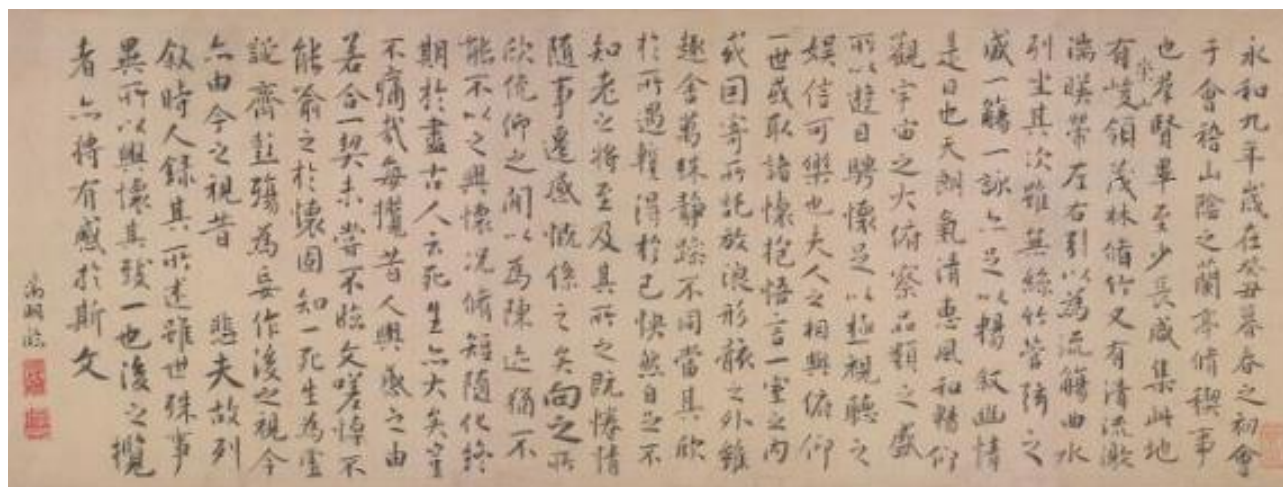 永和九年歲在癸丑暮春之初會
于會稽山陰之蘭亭脩稧事
也羣賢畢至少長咸集此地
有崇山峻領茂林脩竹又有清流激
湍暎帶左右引以為流觴曲水
列坐其次雖無絲竹管弦之
盛一觴一詠亦足以暢叙幽情
是日也天朗氣清惠風和暢仰
觀宇宙之大俯察品類之盛
所以遊目騁懷足以極視聽之
娛信可樂也夫人之相與俯仰
一世或取諸懷抱悟言一室之內
或因寄所託放浪形骸之外雖
趣舍萬殊靜躁不同當其欣
於所遇蹔得於己怏然自足不
知老之將至及其所之既惓情
隨事遷感慨係之矣向之所
欣俛仰之閒以為陳迹猶不
能不以之興懷況脩短隨化終
期於盡古人云死生亦大矣豈
不痛哉每攬昔人興感之由
若合一契未嘗不臨文嗟悼不
能喻之於懷固知一死生為虛
誕齊彭殤為妄作後之視今
亦由今之視昔 悲夫故列
叙時人錄其所述雖世殊事
異所以興懷其致一也後之攬
者亦將有感於斯文